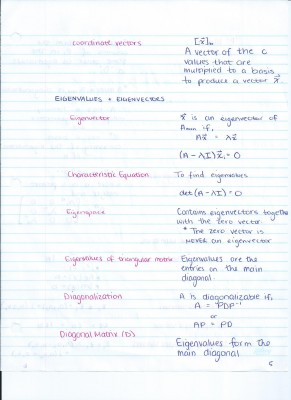 coordinate vectors [x⃗]ᵦ
A vector of the c
values that are
multiplied to a basis
to produce a vector x⃗.
EIGENVALUES + EIGENVECTORS
Eigenvector x⃗ is an eigenvector of
Anxn if,
Ax⃗ = λx⃗
(A - λI)x⃗ = 0
Characteristic Equation To find eigenvalues
det(A - λI) = 0
Eigenspace Contains eigenvectors together
with the zero vector.
* The zero vector is
NEVER an eigenvector
Eigenvalues of triangular matrix Eigenvalues are the
entries on the main
diagonal
Diagonalization A is diagonalizable if,
A = PDP⁻¹
or
AP = PD
Diagonal Matrix (D) Eigenvalues form the
main diagonal